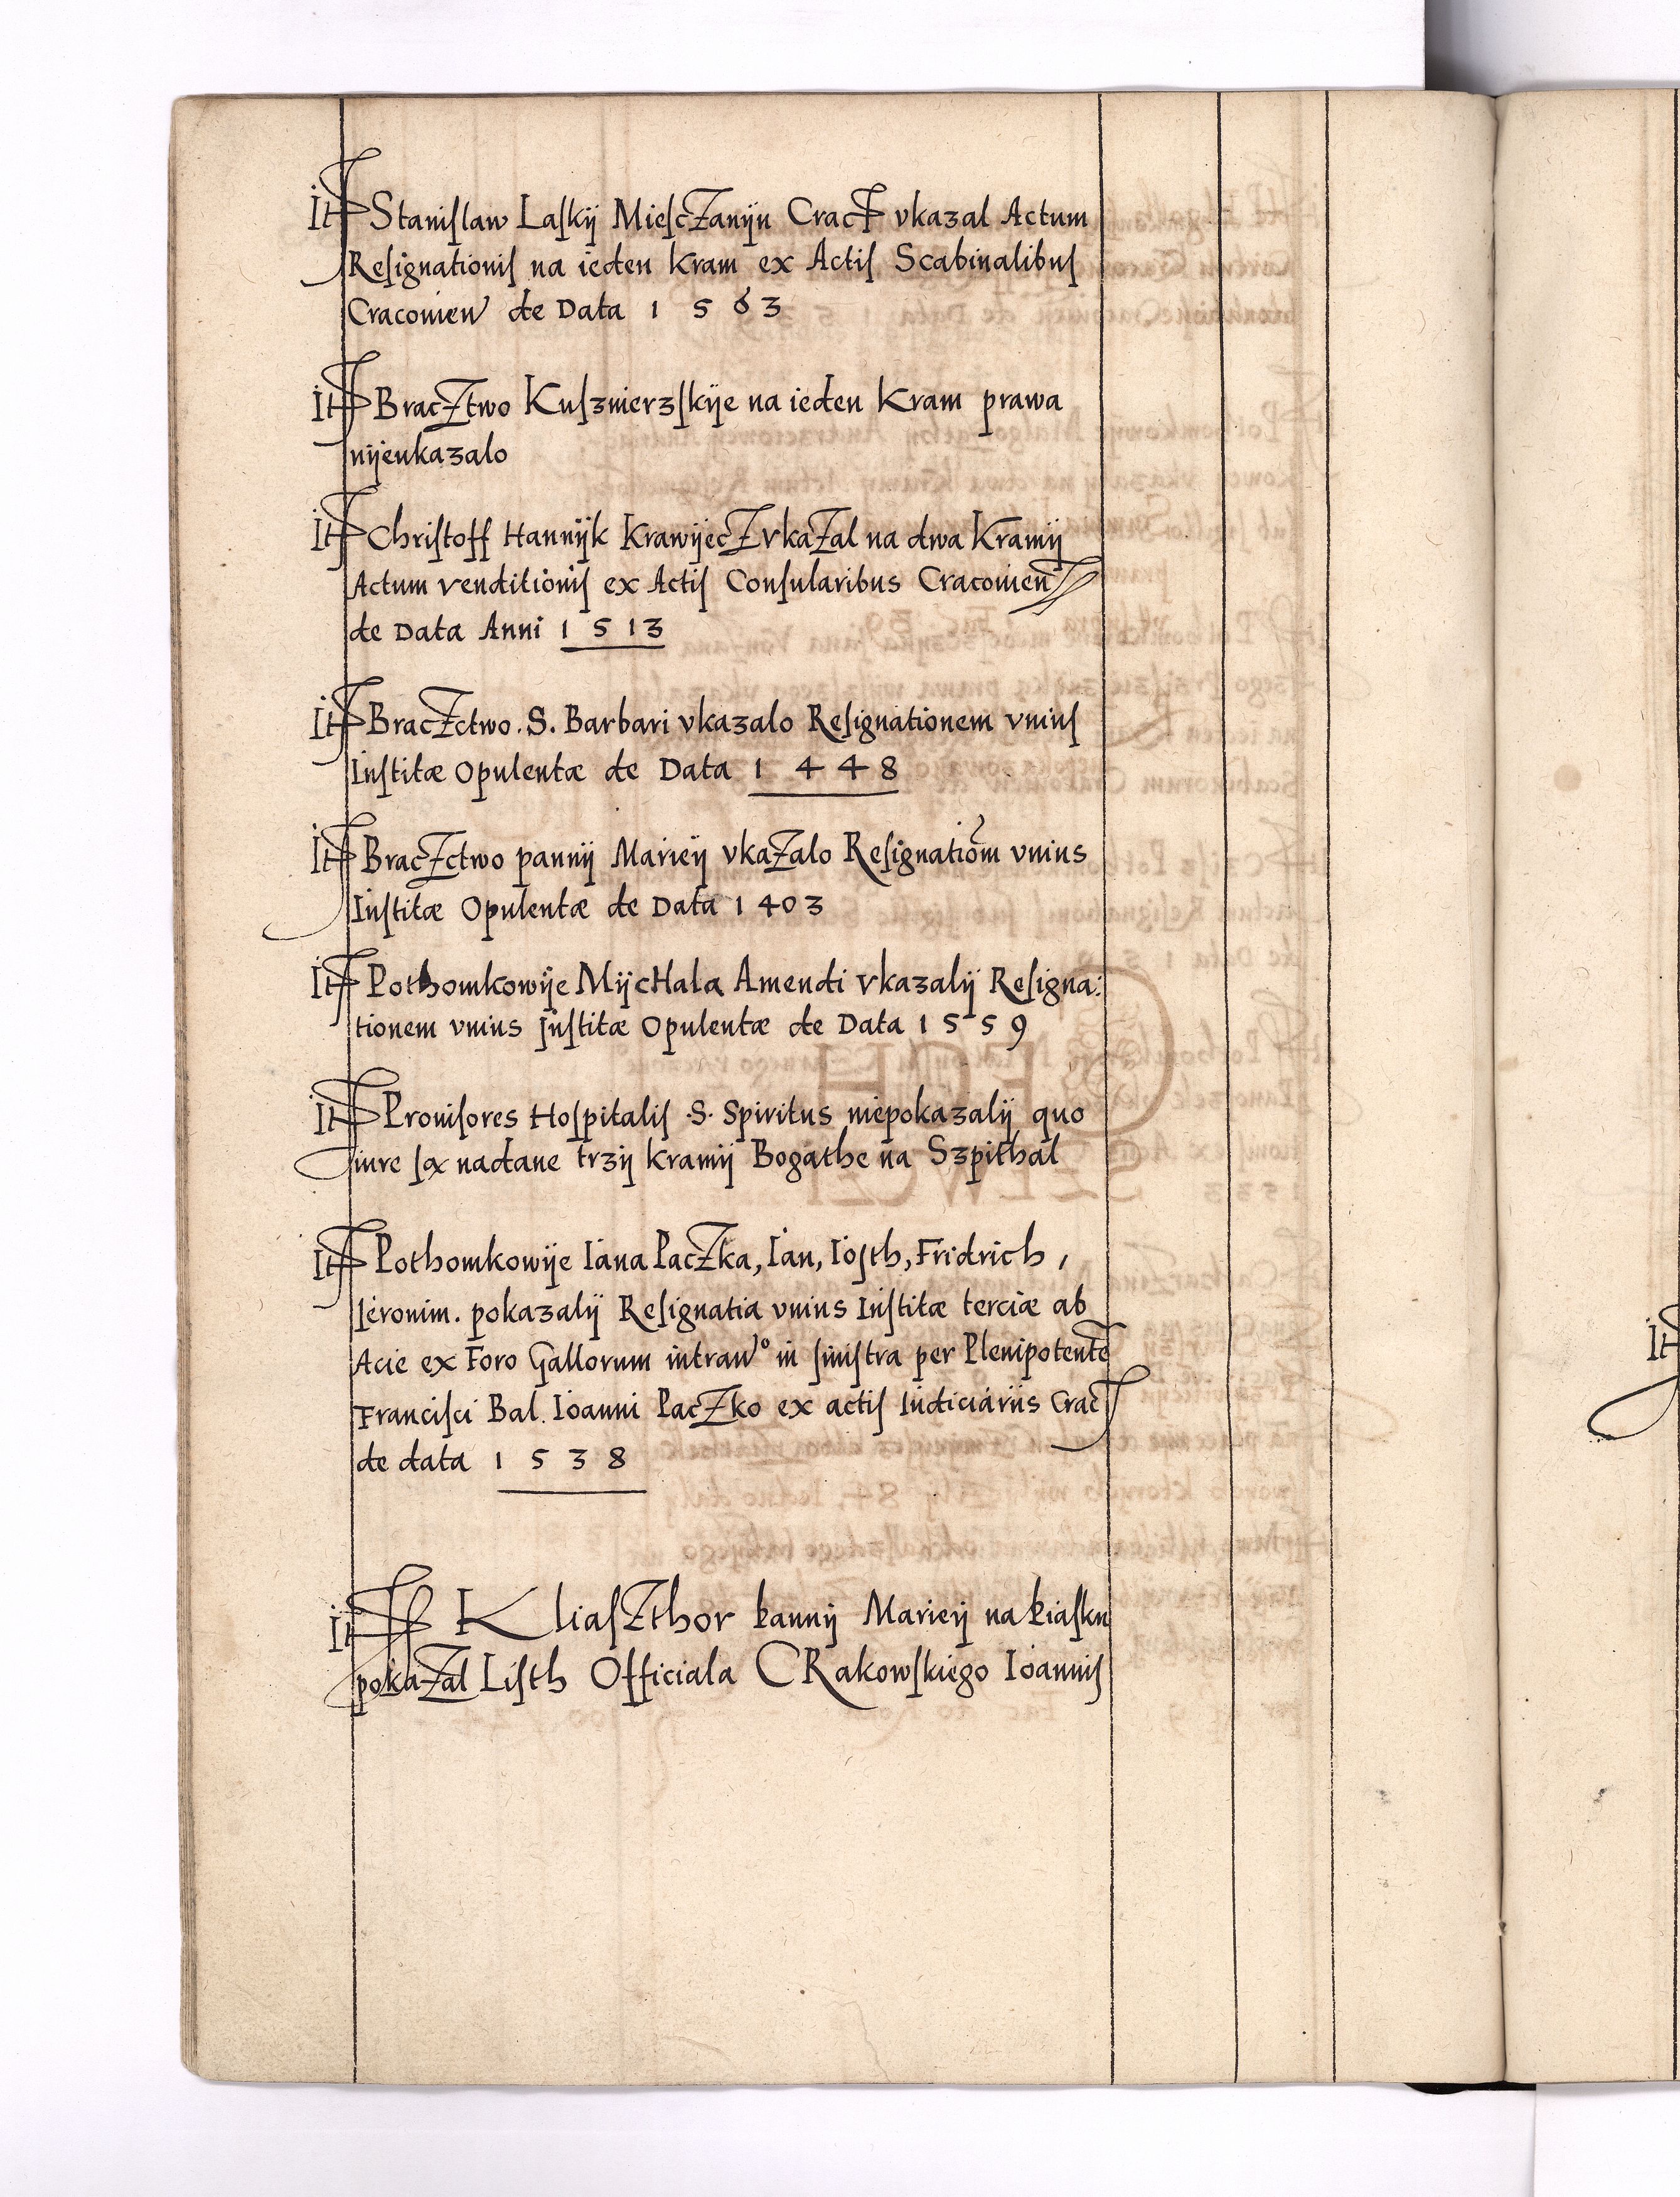 It Stanislaw Laskÿ MiescZanÿn Crac vkazal Actum
Resignationis na ieden kram ex Actis Scabinalibus
Cracouien de Data 1 5 6 3
It BracZtwo Kuszmierzskÿe na ieden Kram prawa
nÿeukazalo
It Christoff Hannÿk KrawÿecZ vkaZal na dwa Kramÿ
Actum venditionis ex Actis Consularibus Cracouien
de Data Anni 1 5 13
It BracZctwo . S. Barbari vkazalo Resignationem vnius
Institæ Opulentæ de Data 1 4 4 8
It BracZctwo pannÿ Marieÿ vkaZalo Resignatiom vnius
Institæ Opulentæ de Data 1 403
It Pothomkowÿe MÿcHala Amendi vkazalÿ Resigna:
tionem vnius Institæ Opulentæ de Data 1 5 5 9
It Prouisores Hospitalis .S. Spiritus niepokazalÿ quo
iure są nadane trzÿ kramÿ Bogathe na Szpithal
It Pothomkowÿe Iana PacZka, Ian, Iosth, Fridrich,
Ieronim. pokazalÿ Resignatia vnius Institæ terciæ ab
Acie ex Foro Gallorum intran° in sinistra per Plenipotente
Francisci Bal. Ioanni PacZko ex actis Iudiciariis Crac
de data 1 5 3 8
It KliasZthor pannÿ Marieÿ na piasku
pokaZal Listh Officiala CRakowskiego Ioannis
It